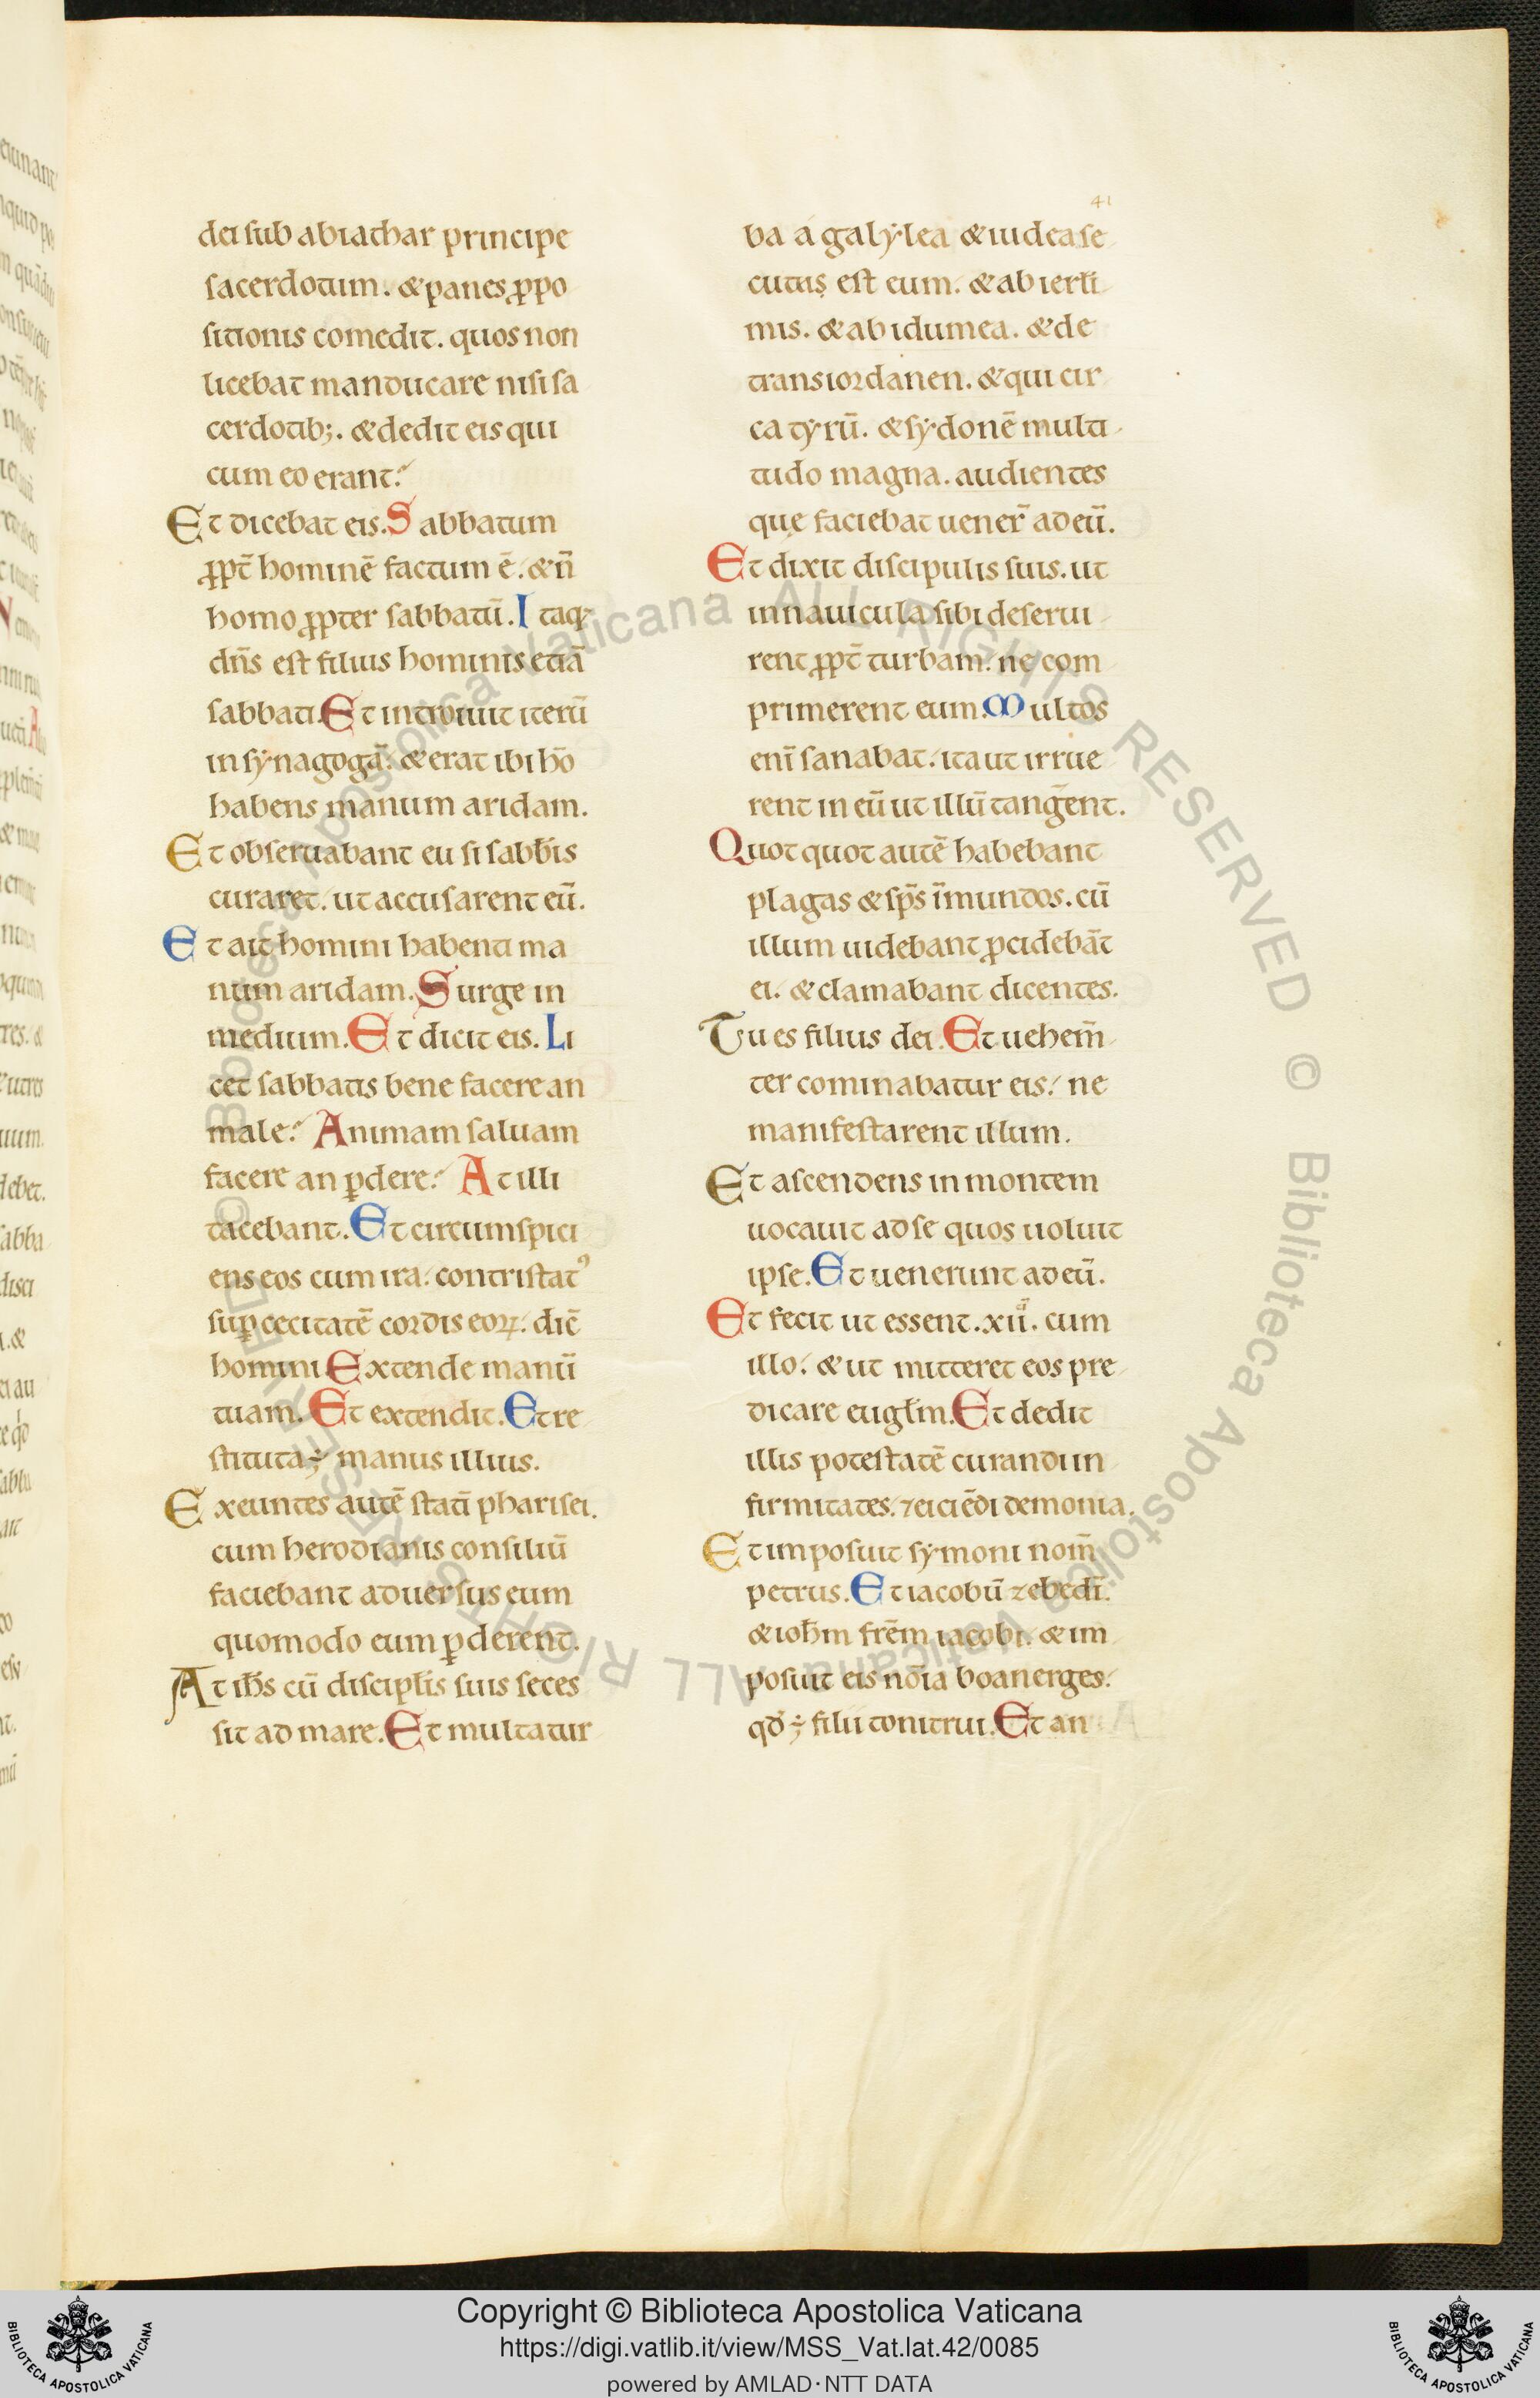 41
dei sub abiathar principe
sacerdotum. & panes ꝓpo
sitionis comedit. quos non
licebat manducare nisi sa
cerdotib;. & dedit eis qui
cum eo erant?
Et dicebat eis. Sabbatum
ꝓpt̄ hominē factum ē. & n̄
homo ꝓpter sabbatū. Itaq;
dn̄s est filius hominis etiā
sabbati. Et introiuit iterū
in synagogā. & erat ibi hō
habens manum aridam.
Et obseruabant eu si sabb̄is
curaret. ut accusarent eū.
Et ait homini habenti ma
num aridam. Surge in
medium. Et dicit eis. Li
cet sabbatis bene facere an
male? Animam saluam
facere an ꝑdere? At illi
tacebant. Et circumspici
ens eos cum ira. contristatꝰ
suꝑ cecitatē cordis eoꝝ. dic̄
homini Extende manū
tuam. Et extendit. Et re
stituta ÷ manus illius.
Exeuntes autē statī pharisei.
cum herodianis consiliū
faciebant aduersus eum
quomodo eum ꝑderent.
At ih̄s cū discipl̄is suis seces
sit ad mare. Et multa tur
ba a galylea & iudea se
cutus est eum. & ab ierl̄i
mis. & ab idumea. & de
transiordanen. & qui cir
ca tyrū. & sydonē multi
tudo magna. audientes
que faciebat uener̄ ad eū.
Et dixit discipulis suis. ut
in nauicula sibi deserui
rent ꝓpt̄ turbam. ne com
primerent eum. Multos
enī sanabat. ita ut irrue
rent in eū ut illū tangerent.
Quotquot autē habebant
plagas & sp̄s īmundos. cū
illum uidebant ꝓcidebāt
ei. & clamabant dicentes.
Tu es filius dei. Et uehem̄
ter cominabatur eis. ne
manifestarent illum.
Et ascendens in montem
uocauit ad se quos uoluit
ipse. Et uenerunt ad eū.
Et fecit ut essent .xii. cum
illo. & ut mitteret eos pre
dicare eugl̄m. Et dedit
illis potestatē curandi in
firmitates. ⁊ eiciēdi demonia.
Et imposuit symoni nom̄
petrus. Et iacobū zebedī.
& ioh̄m fr̄em iacobi. & im
posuit eis nōia boanerges.
qd̄ ÷ filii tonitrui. Et an
Copyright © Biblioteca Apostolica Vaticana
https://digi.vatlib.it/view/MSS_Vat.lat.42/0085
powered by AMLAD·NTT DATA
BIBLIOTECA APOSTOLICA VATICANA
BIBLIOTECA APOSTOLICA VATICANA
© Biblioteca Apostolica Vaticana ALL RIGHTS RESERVED © Biblioteca Apostolica Vaticana ALL RIGHTS RESERVED